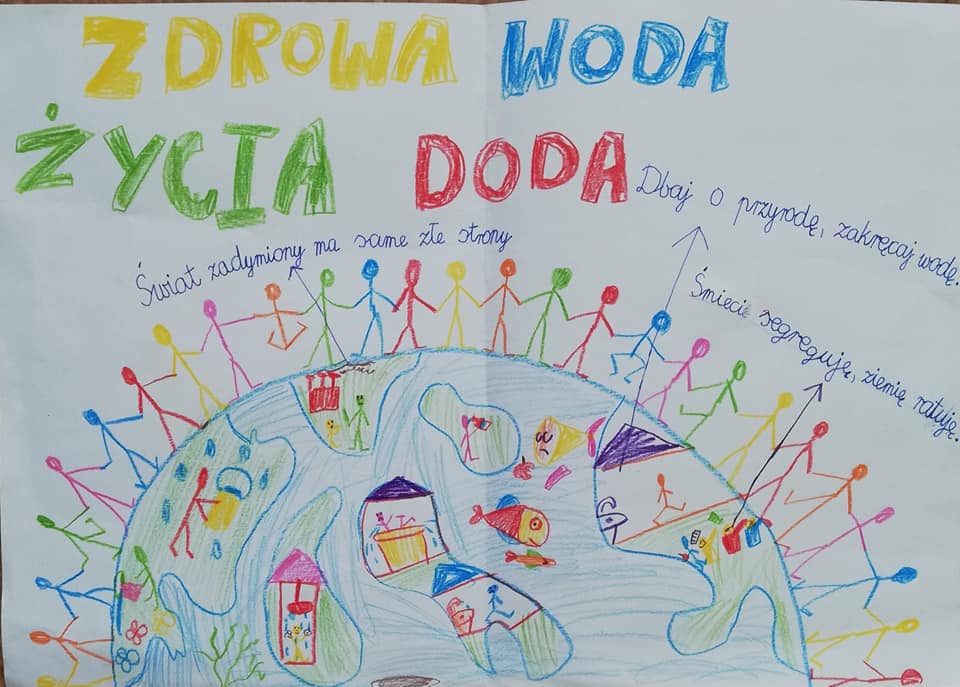 ZDROWA WODA
ŻYCIA DODA
Dbaj o przyrodę, zakręcaj wodę.
Świat zadymiony ma same złe strony
Śmieci segreguję, ziemię ratuję.